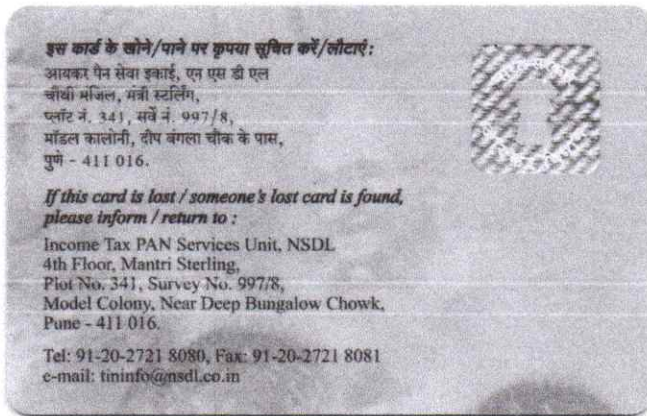 इस कार्ड के खोने/पाने पर कृपया सूचित करें/लौटाएं :
आयकर पैन सेवा इकाई, एन एस डी एल
चौथी मंजिल, मंत्री स्टर्लिंग,
प्लॉट नं. 341, सर्वे नं. 997/8,
मॉडल कालोनी, दीप बंगला चौक के पास,
पुणे - 411 016.
If this card is lost / someone's lost card is found,
please inform / return to :
Income Tax PAN Services Unit, NSDL
4th Floor, Mantri Sterling,
Plot No. 341, Survey No. 997/8,
Model Colony, Near Deep Bungalow Chowk,
Pune - 411 016.
Tel: 91-20-2721 8080, Fax: 91-20-2721 8081
e-mail: tininfo@nsdl.co.in